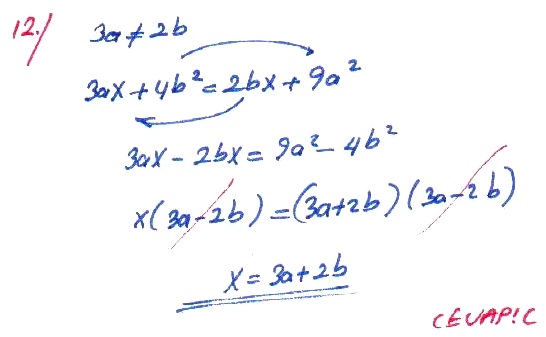 12./ 3a≠2b
3ax+4b²=2bx+9a²
3ax-2bx=9a²-4b²
x(3a-2b)=(3a+2b)(3a-2b)
x=3a+2b
CEVAP:C